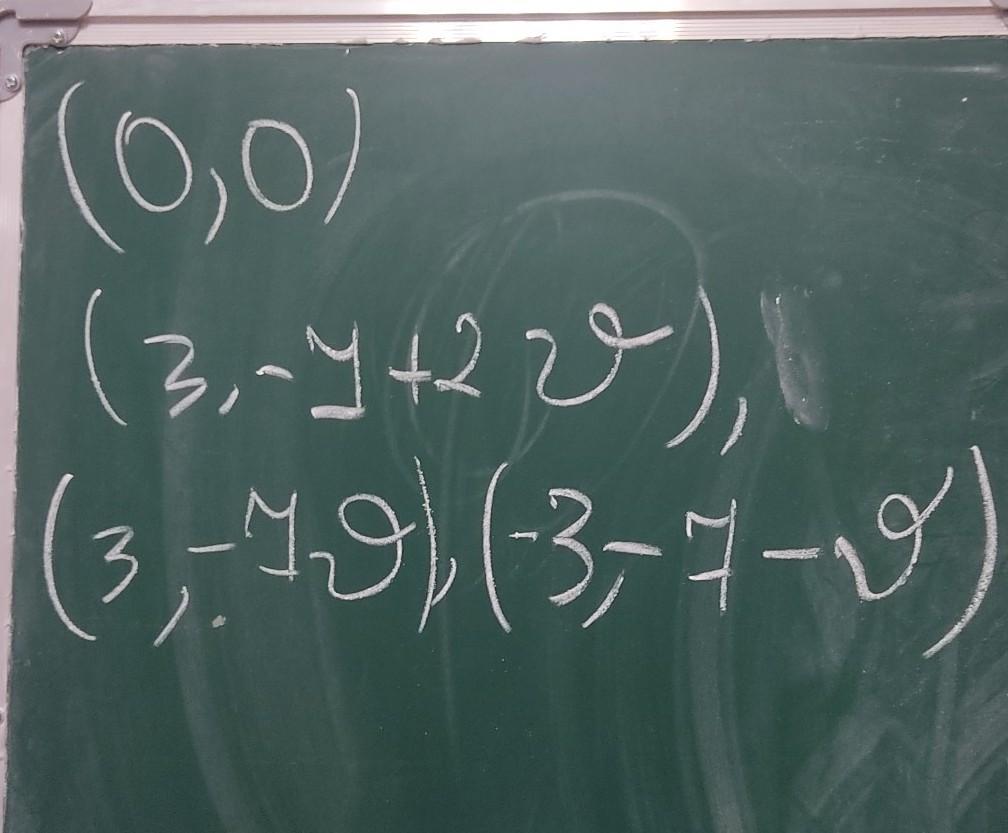 (0,0)
(3,-7+2ϑ),
(3,-7ϑ),(-3,-7-ϑ)